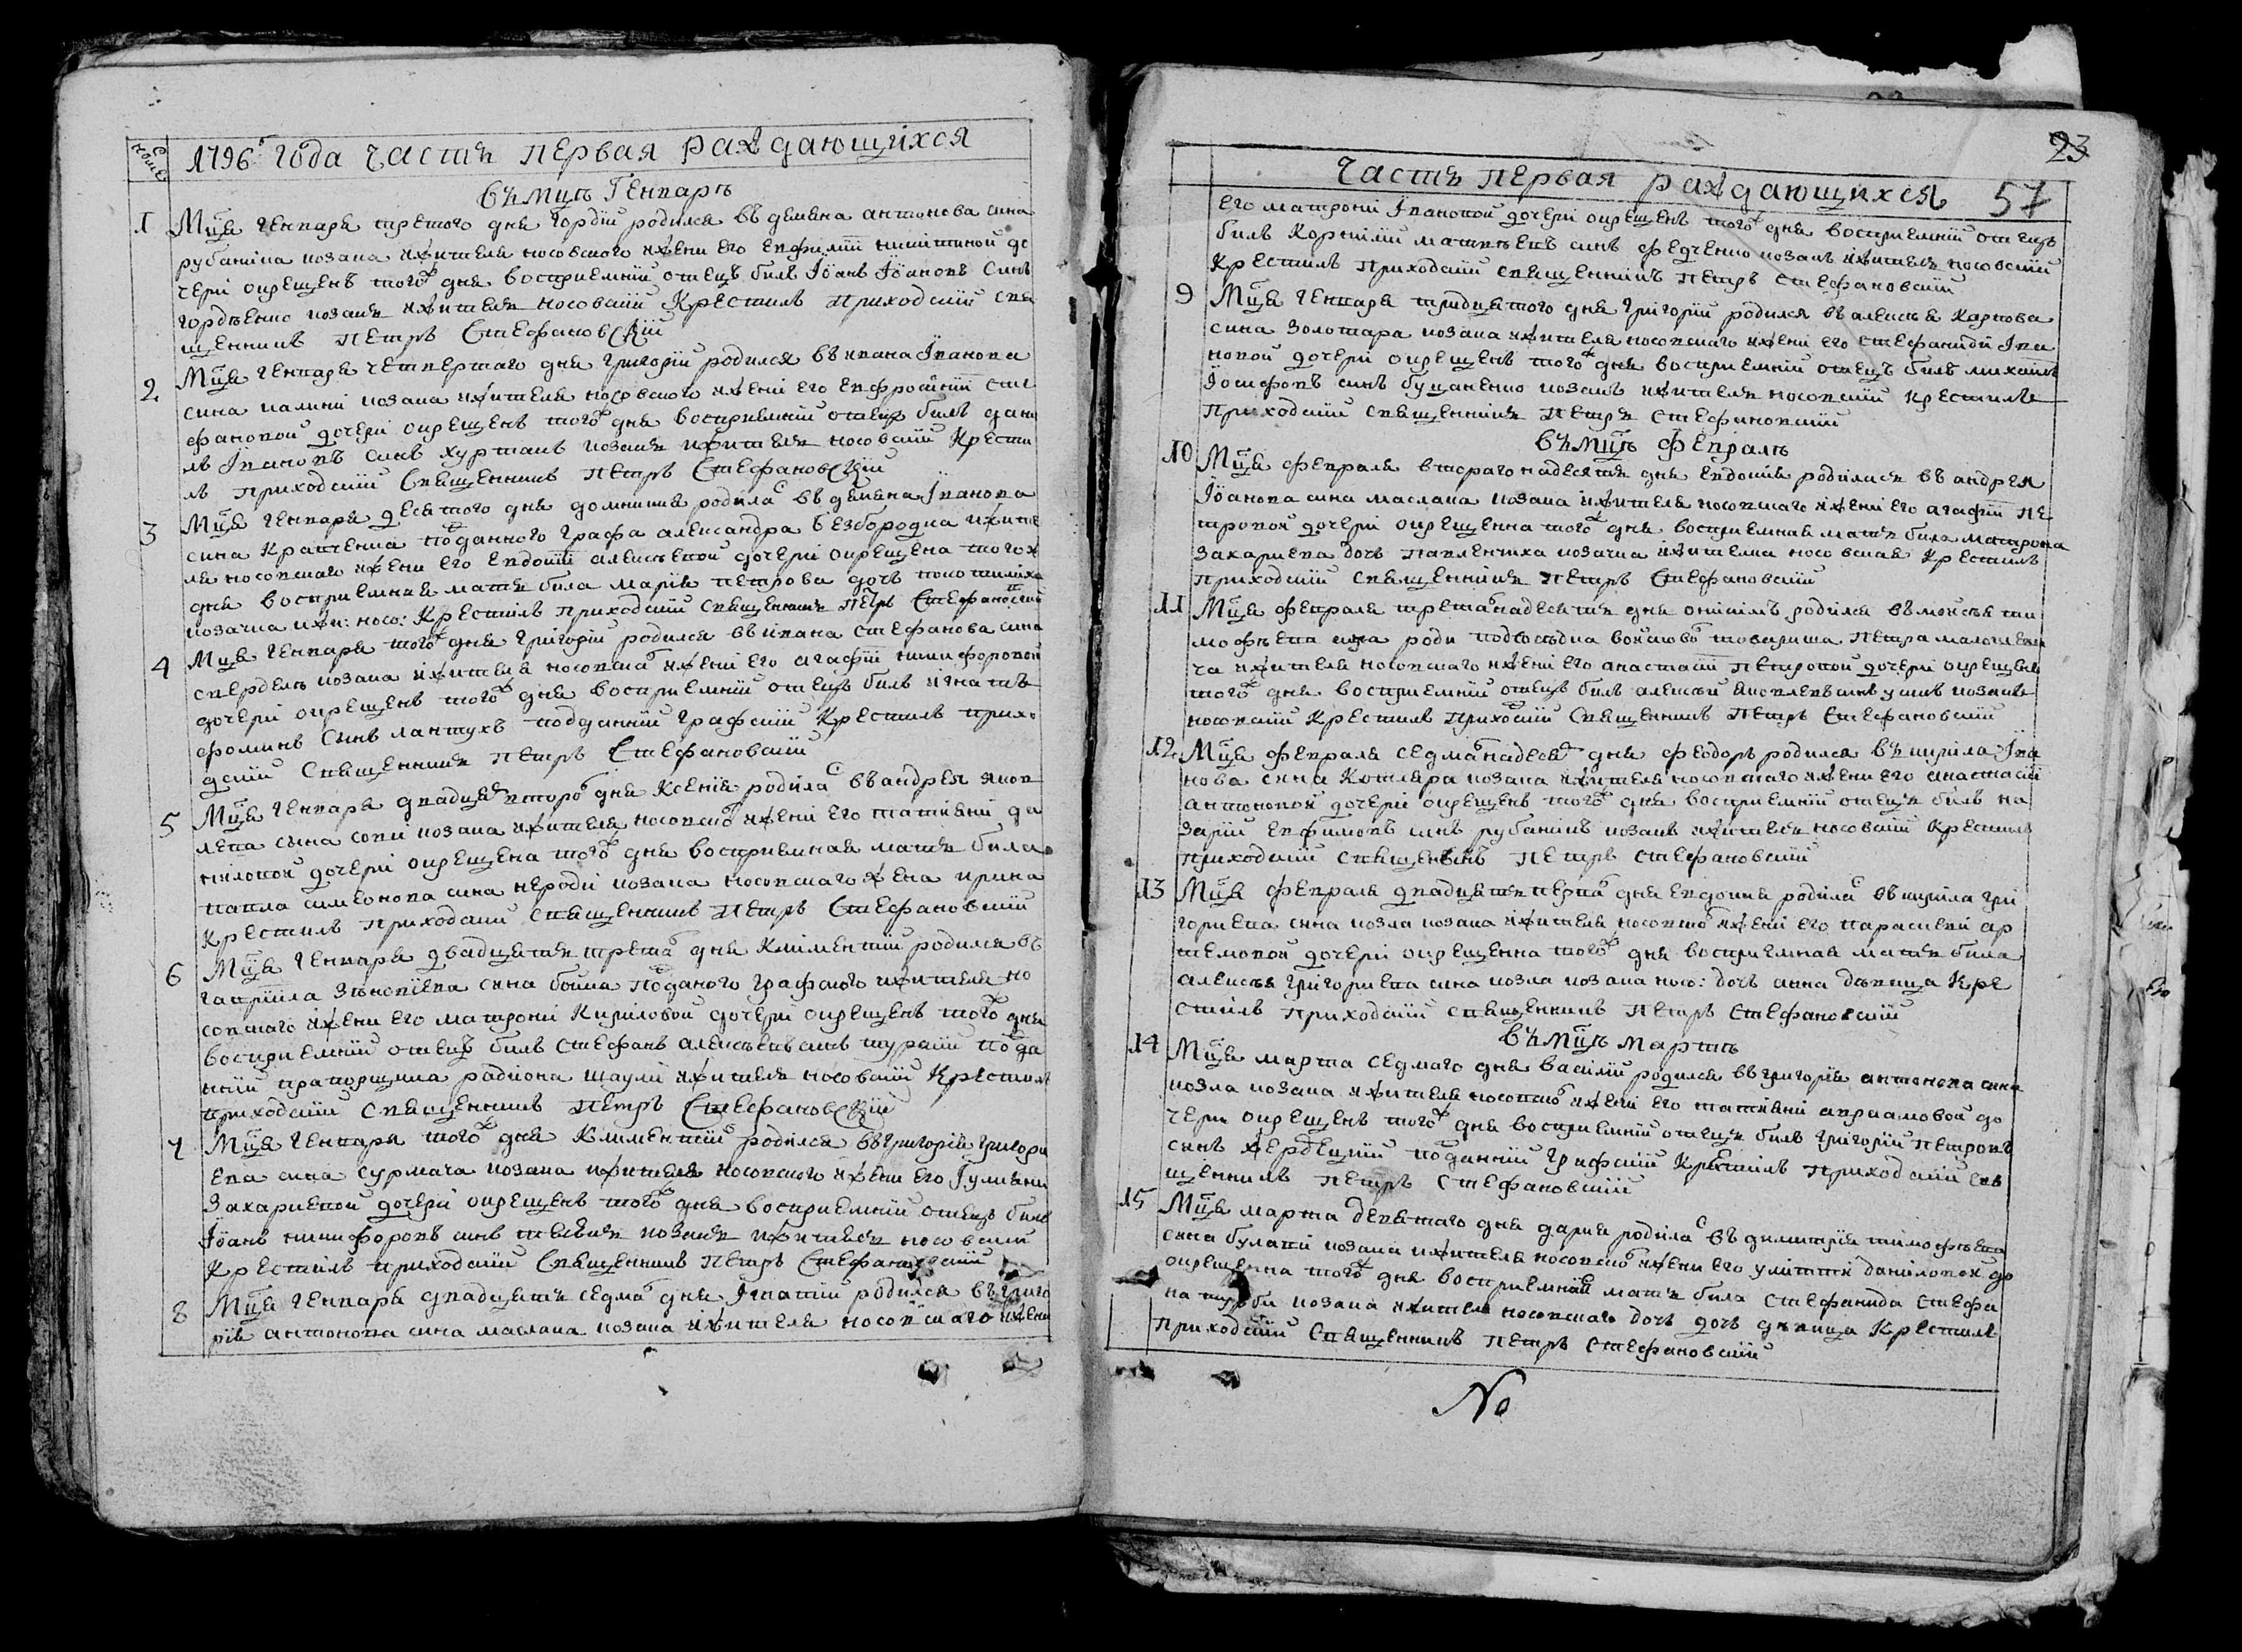 номеръ
1796 года часть первая раждающихся
въ мцѣ Генварѣ
1 Мца генваря третого дня Гордій родился въ демяна антонова сина
рубаніка козака жителя носовского жени его евфиміи никитиной до
чері окрещенъ того ж дня восприемній отецъ билъ Іоанъ Іоановъ Синъ
гордѣенко козакъ житель носовскій Крестилъ приходскій свя
щенникъ Петръ Стефановскій
2 Мца генваря четвертаго дня Григорій родился въ ивана Іванова
сина калині козака жителя носовского жені его евфросиніи сте
фановой дочері окрещенъ того ж дня восприемній отецъ билъ дани
лъ Івановъ синъ хурманъ козакъ житель носовскій Крести
лъ приходскій Священникъ Петръ Стефановскій
3 Мца генваря десятого дня домникия родилас въ демяна Іванова
сина Кравченка подданного графа александра безбородка жите
ля носовскаго жени его евдокіи алексѣевой дочері окрещена того ж
дня восприемная мать била марія петрова дочъ
козачка жи: носо: Крестилъ приходскій священникъ Петръ Стефановскій
4 Мца генваря того ж дня григорій родился въ ивана стефанова сина
свердель козака жителя носовскаго жені его агафіи никифоровой
дочері окрещенъ того ж дня восприемній отецъ билъ игнатъ
фоминъ Сынъ лантухъ подданній графскій Крестилъ прихо
дскій Священникъ Петръ Стефановскій
5 Мца генваря двадцять второго дня Ксенія родилас въ андрея яков
лева сына сопі козака жителя носовского жені его татіяні да
ніловой дочері окрещена того ж дня восприемная мать била
павла симеонова сина нероді козака носовскаго жена ирина
Крестилъ приходскій священникъ Петръ Стефановскій
6 Мца генваря двадцять трета го дня Кліментій родился въ
гавріила Зѣновіева сина бойка подданого графского жителя но
совскаго жени его матроні Кириловой дочері окрещенъ того ж дня
восприемній отецъ билъ Стефанъ алексѣевъ синъ турскій подда
ній прапорщика радиона шаулі житель носовскій Крестилъ
приходскій священникъ Петръ Стефановскій
7 Мца генваря того ж дня Климентій родился въ григорія григори
ева сина сурмача козака жителя носовского жени его Іуліяни
Захариевой дочері окрещенъ того ж дня восприемній отецъ билъ
Іоанъ никифоровъ синъ козакъ житель носовскій
Крестилъ приходскій Священникъ Петръ Стефановскій
8 Мца генваря двадцять седмаго дня Ігнатій родился въ григо
рія антонова сина маслака козака жителя носовскаго жени
23
Часть первая раждающихся 57
его матроні Івановой дочері окрещенъ того ж дня восприемній отецъ
билъ Корнілій матвѣевъ синъ федченко козакъ житель носовскій
Крестилъ приходскій священникъ Петръ Стефановскій
9 Мца генваря тридцятого дня григорій родился въ алексѣя Карпова
сина золотара козака жителя носовскаго жені его стефаниди Іва
новой дочері окрещенъ того ж дня восприемній отецъ билъ михаилъ
Іосифовъ синъ буцаненко козакъ житель носовскій крестилъ
приходскій священникъ Петръ Стефановскій
въ мцѣ февралѣ
10 Мца февраля второгонадесять дня евдокия родилася въ андрея
Іоанова сина маслака козака жителя носовскаго жені его агафіи пе
тровой дочері окрещенна того ж дня восприемная мать била матрона
Захариева дочъ павленчиха козачка жителка носовская Крестилъ
приходскій священникъ Петръ Стефановскій
11 Мца февраля третагонадесять дня онісімъ родился въ моисѣя ти
мофѣева сина роди подсосѣдка войскового товариша Петра
ча жителя носовскаго жені его анастасіи Петровой дочери окрещенъ
того ж дня восприемній отецъ билъ алексѣй яковлевъ синъ козакъ
носовскій Крестилъ приходскій Священникъ Петръ Стефановскій
12 Мца февраля седмагонадесять дня феодоръ родился въ кирила Іва
нова сина Котляра козака жителя носовскаго жени его анастасіи
антоновой дочері окрещенъ того ж дня восприемній отецъ билъ на
зарій евфимовъ синъ рубанікъ козакъ житель носовскій Крестилъ
приходскій священникъ Петръ Стефановскій
13 Мца февраля двадцять перваго дня евдокия родилас въ кирила гри
гориева сина козла козака жителя носовского жені его параскеви ар
темовой дочері окрещенна того ж дня восприемная мать била
алексѣя григориева сина козла козака носо: дочъ анна дѣвица Кре
стилъ приходскій священникъ Петръ Стефановскій
въ мцѣ мартѣ
14 Мца марта седмаго дня василій родился въ григорія антонова сина
козла козака жителя носовского жені его татіяні авраамовой до
чери окрещенъ того ж дня восприемній отецъ билъ григорій Петровъ
синъ жердецкій подданній графскій Крестилъ приходскій свя
щенникъ Петръ Стефановскій
15 Мца марта девятаго дня дария родилас въ димитрія тимофѣева
сина булаті козака жителя носовского жени его улитти даниловой до
окрещенна того ж дня восприемная мать била стефанида стефа
на турби козака жителя носовскаго дочъ дочъ дѣвица Крестилъ
приходскій Священникъ Петръ Стефановскій
No